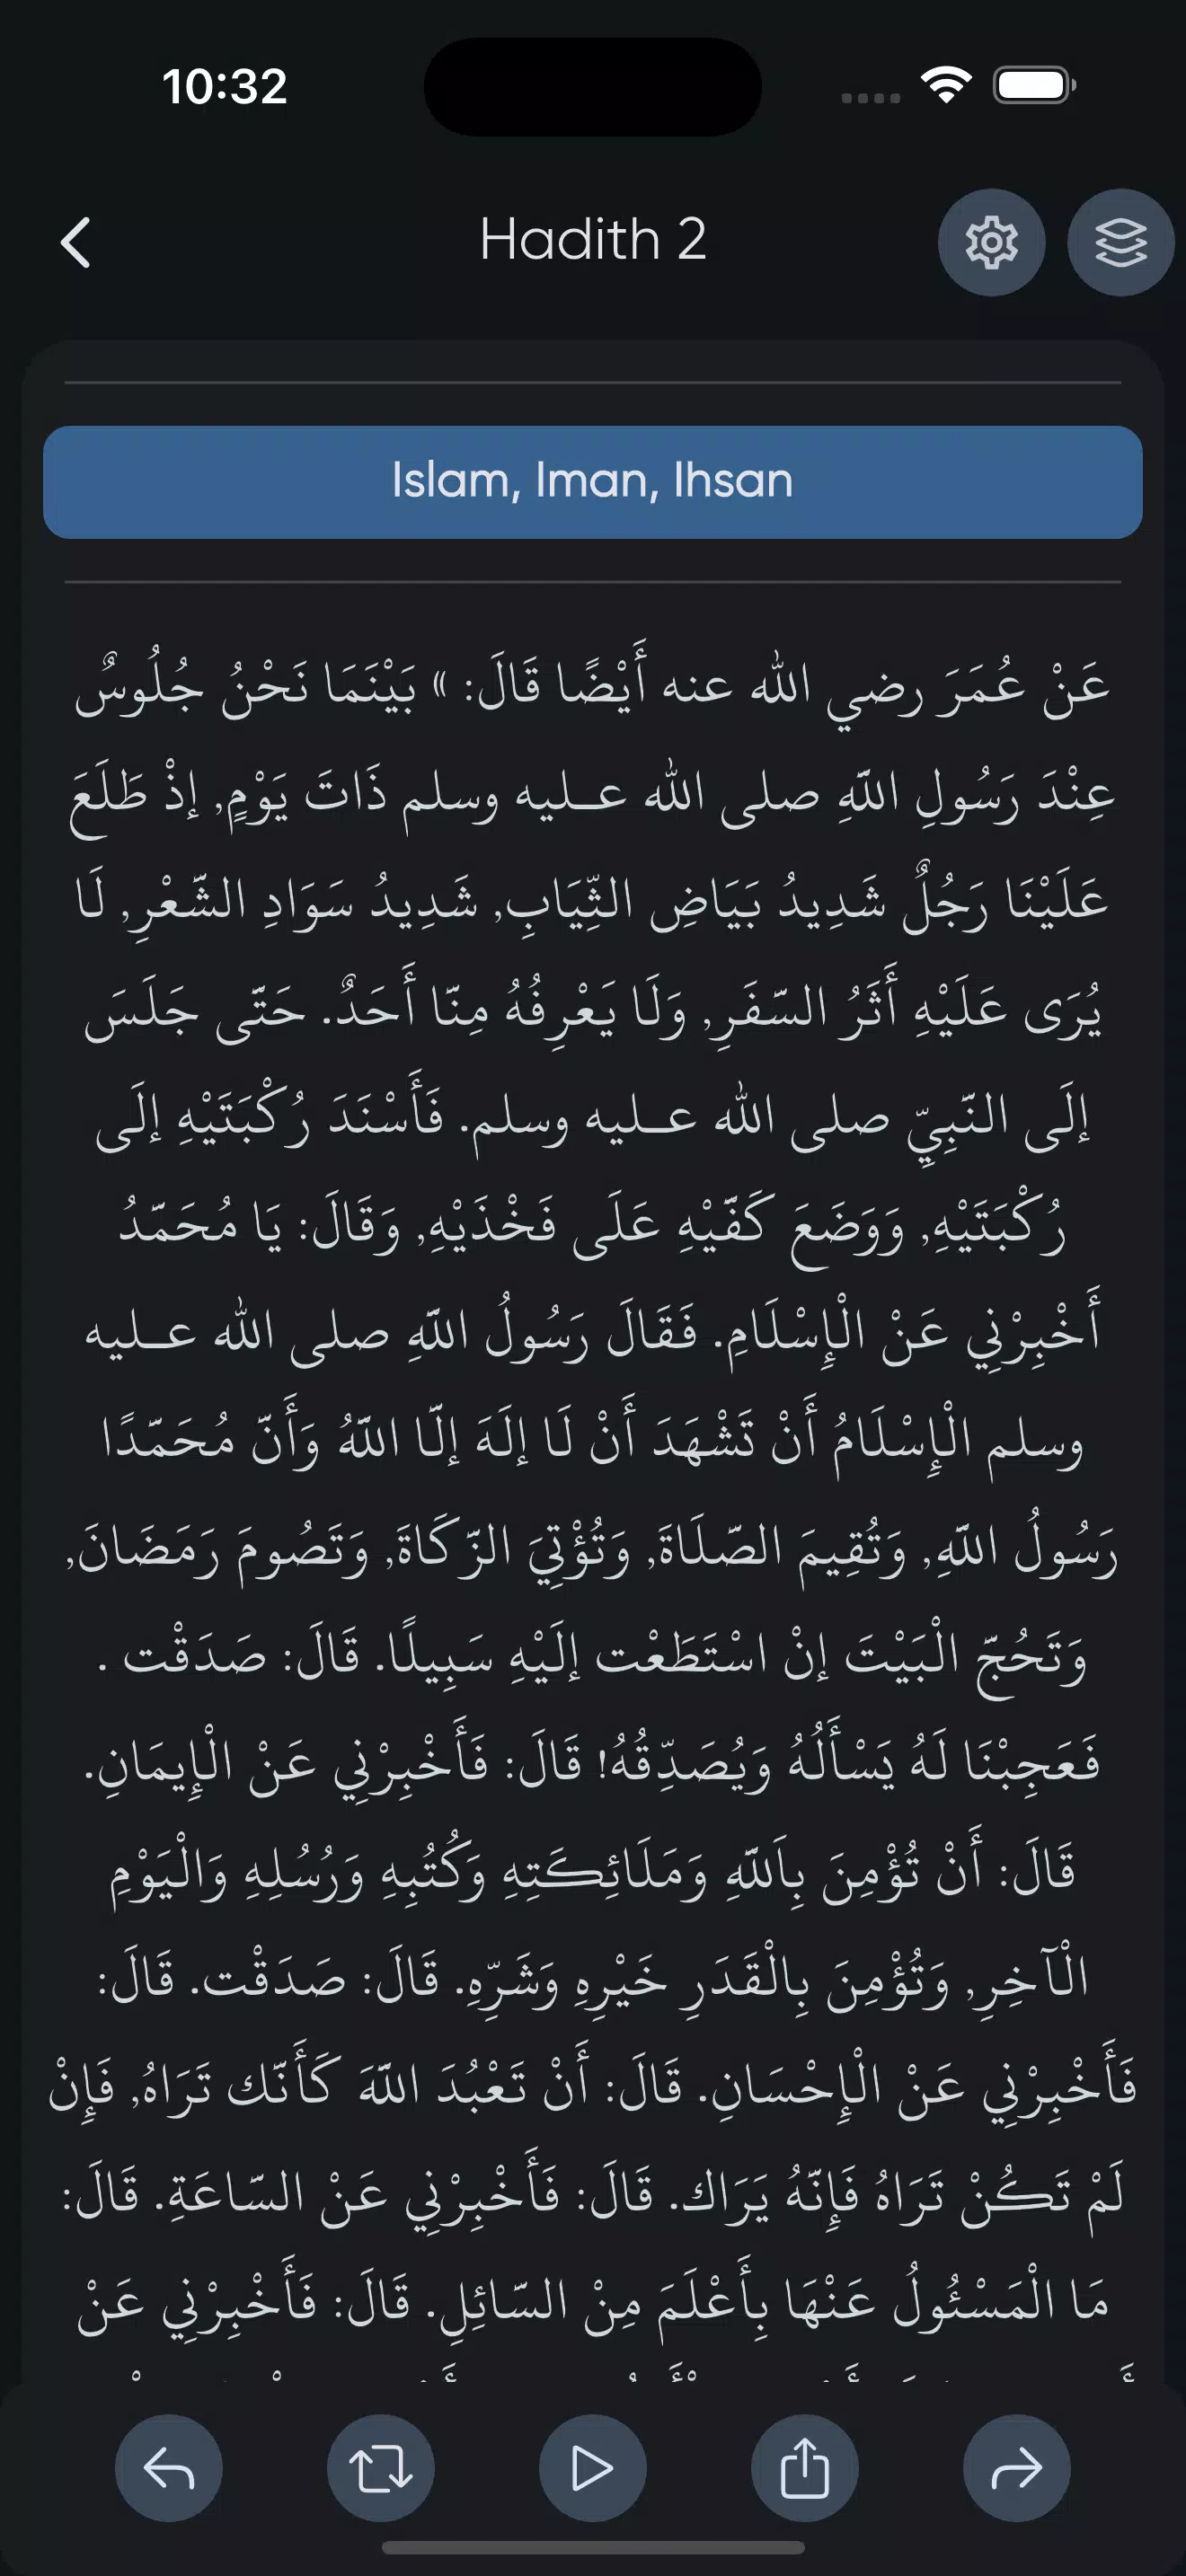 10:32
Hadith 2
Islam, Iman, Ihsan
عَنْ عُمَرَ رضي الله عنه أَيْضًا قَالَ: » بَيْنَمَا نَحْنُ جُلُوسٌ
عِنْدَ رَسُولِ اللَّهِ صلى الله عـليه وسلم ذَاتَ يَوْمٍ, إذْ طَلَعَ
عَلَيْنَا رَجُلٌ شَدِيدُ بَيَاضِ الثِّيَابِ, شَدِيدُ سَوَادِ الشَّعْرِ, لَا
يُرَى عَلَيْهِ أَثَرُ السَّفَرِ, وَلَا يَعْرِفُهُ مِنَّا أَحَدٌ. حَتَّى جَلَسَ
إلَى النَّبِيِّ صلى الله عـليه وسلم. فَأَسْنَدَ رُكْبَتَيْهِ إلَى
رُكْبَتَيْهِ, وَوَضَعَ كَفَّيْهِ عَلَى فَخْذَيْهِ, وَقَالَ: يَا مُحَمَّدُ
أَخْبِرْنِي عَنْ الْإِسْلَامِ. فَقَالَ رَسُولُ اللَّهِ صلى الله عـليه
وسلم الْإِسْلَامُ أَنْ تَشْهَدَ أَنْ لَا إلَهَ إلَّا اللَّهُ وَأَنَّ مُحَمَّدًا
رَسُولُ اللَّهِ, وَتُقِيمَ الصَّلَاةَ, وَتُؤْتِيَ الزَّكَاةَ, وَتَصُومَ رَمَضَانَ,
وَتَحُجَّ الْبَيْتَ إنْ اسْتَطَعْت إلَيْهِ سَبِيلًا. قَالَ: صَدَقْت .
فَعَجِبْنَا لَهُ يَسْأَلُهُ وَيُصَدِّقُهُ! قَالَ: فَأَخْبِرْنِي عَنْ الْإِيمَانِ.
قَالَ: أَنْ تُؤْمِنَ بِاَللَّهِ وَمَلَائِكَتِهِ وَكُتُبِهِ وَرُسُلِهِ وَالْيَوْمِ
الْآخِرِ, وَتُؤْمِنَ بِالْقَدَرِ خَيْرِهِ وَشَرِّهِ. قَالَ: صَدَقْت. قَالَ:
فَأَخْبِرْنِي عَنْ الْإِحْسَانِ. قَالَ: أَنْ تَعْبُدَ اللَّهَ كَأَنَّك تَرَاهُ, فَإِنْ
لَمْ تَكُنْ تَرَاهُ فَإِنَّهُ يَرَاك. قَالَ: فَأَخْبِرْنِي عَنْ السَّاعَةِ. قَالَ:
مَا الْمَسْئُولُ عَنْهَا بِأَعْلَمَ مِنْ السَّائِلِ. قَالَ: فَأَخْبِرْنِي عَنْ